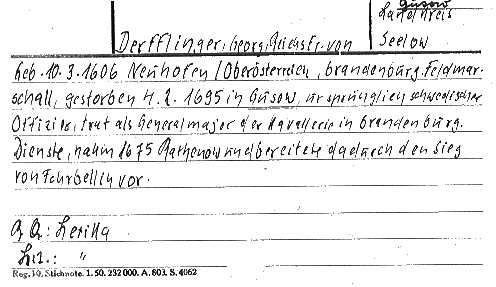 Gusow
Landkreis
Derfflinger, Georg, Reichsfr. von
Seelow
Geb. 10.3.1606 Neuhofen/Oberösterreich, brandenburg. Feldmar-
schall, gestorben 4.2.1695 in Gusow, ursprünglich schwedischer
Offizier, trat als Generalmajor der Kavallerie in brandenburg.
Dienste, nahm 1675 Rathenow und bereitete dadurch den Sieg
von Fehrbellin vor.
QQ: Lexika
Lit.: "
Reg. 10. Stichnote. 1. 50. 232 000. A. 603. S. 4062